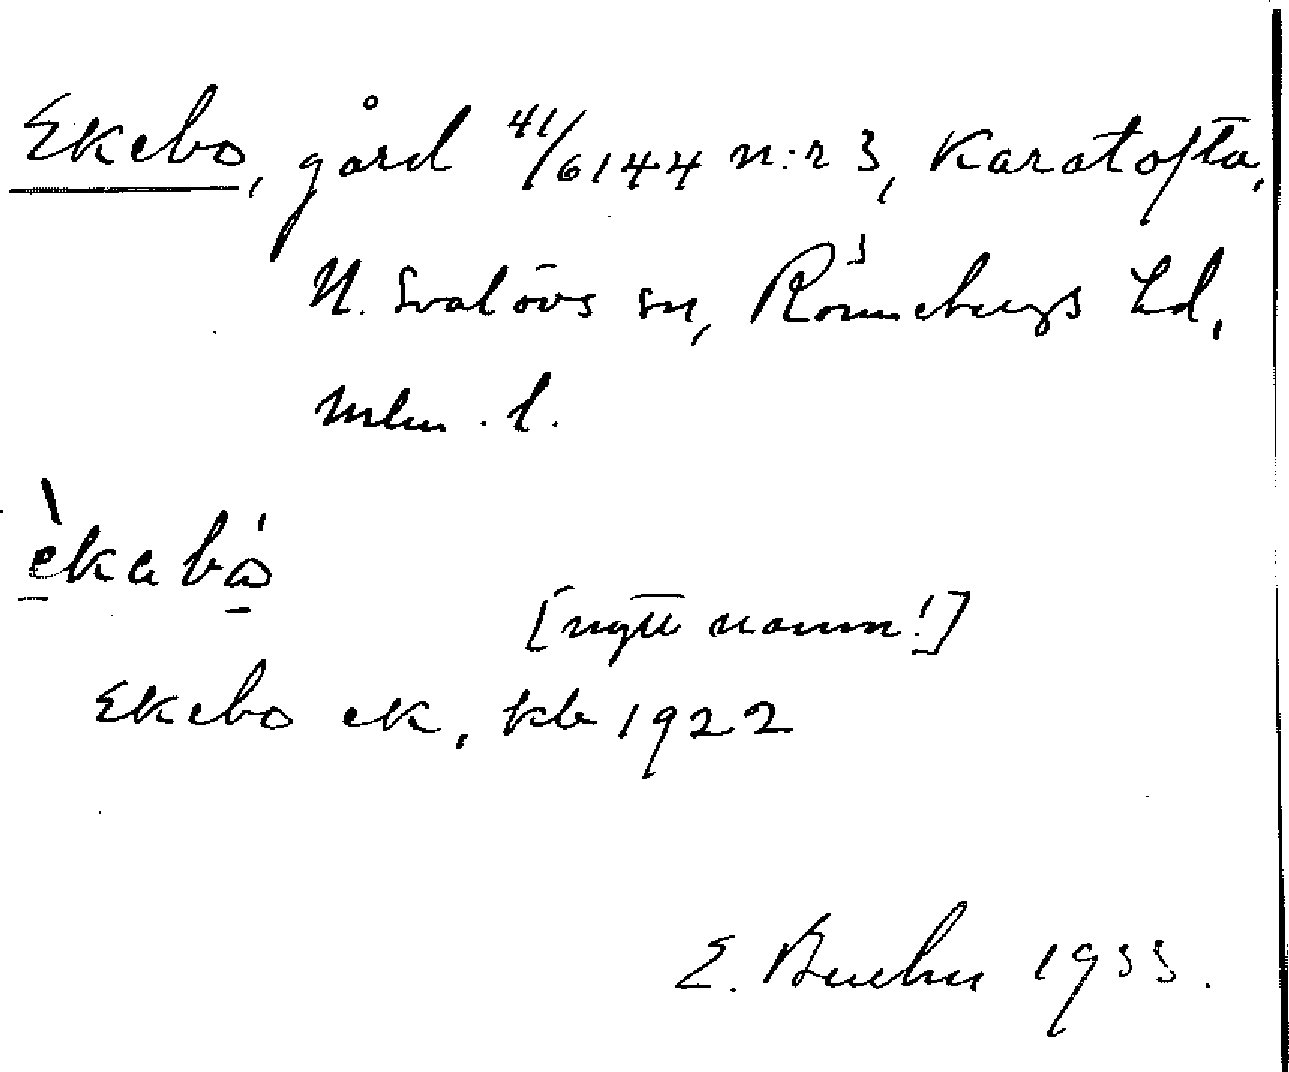 Ekebo, gård 41/6144 n:r 3, Karatofta,
N. Svalövs sn, Rönnebergs hd,
Mlm. l.
èkabó
[nytt namn!]
Ekebo ek, kb 1922
E. 1933.